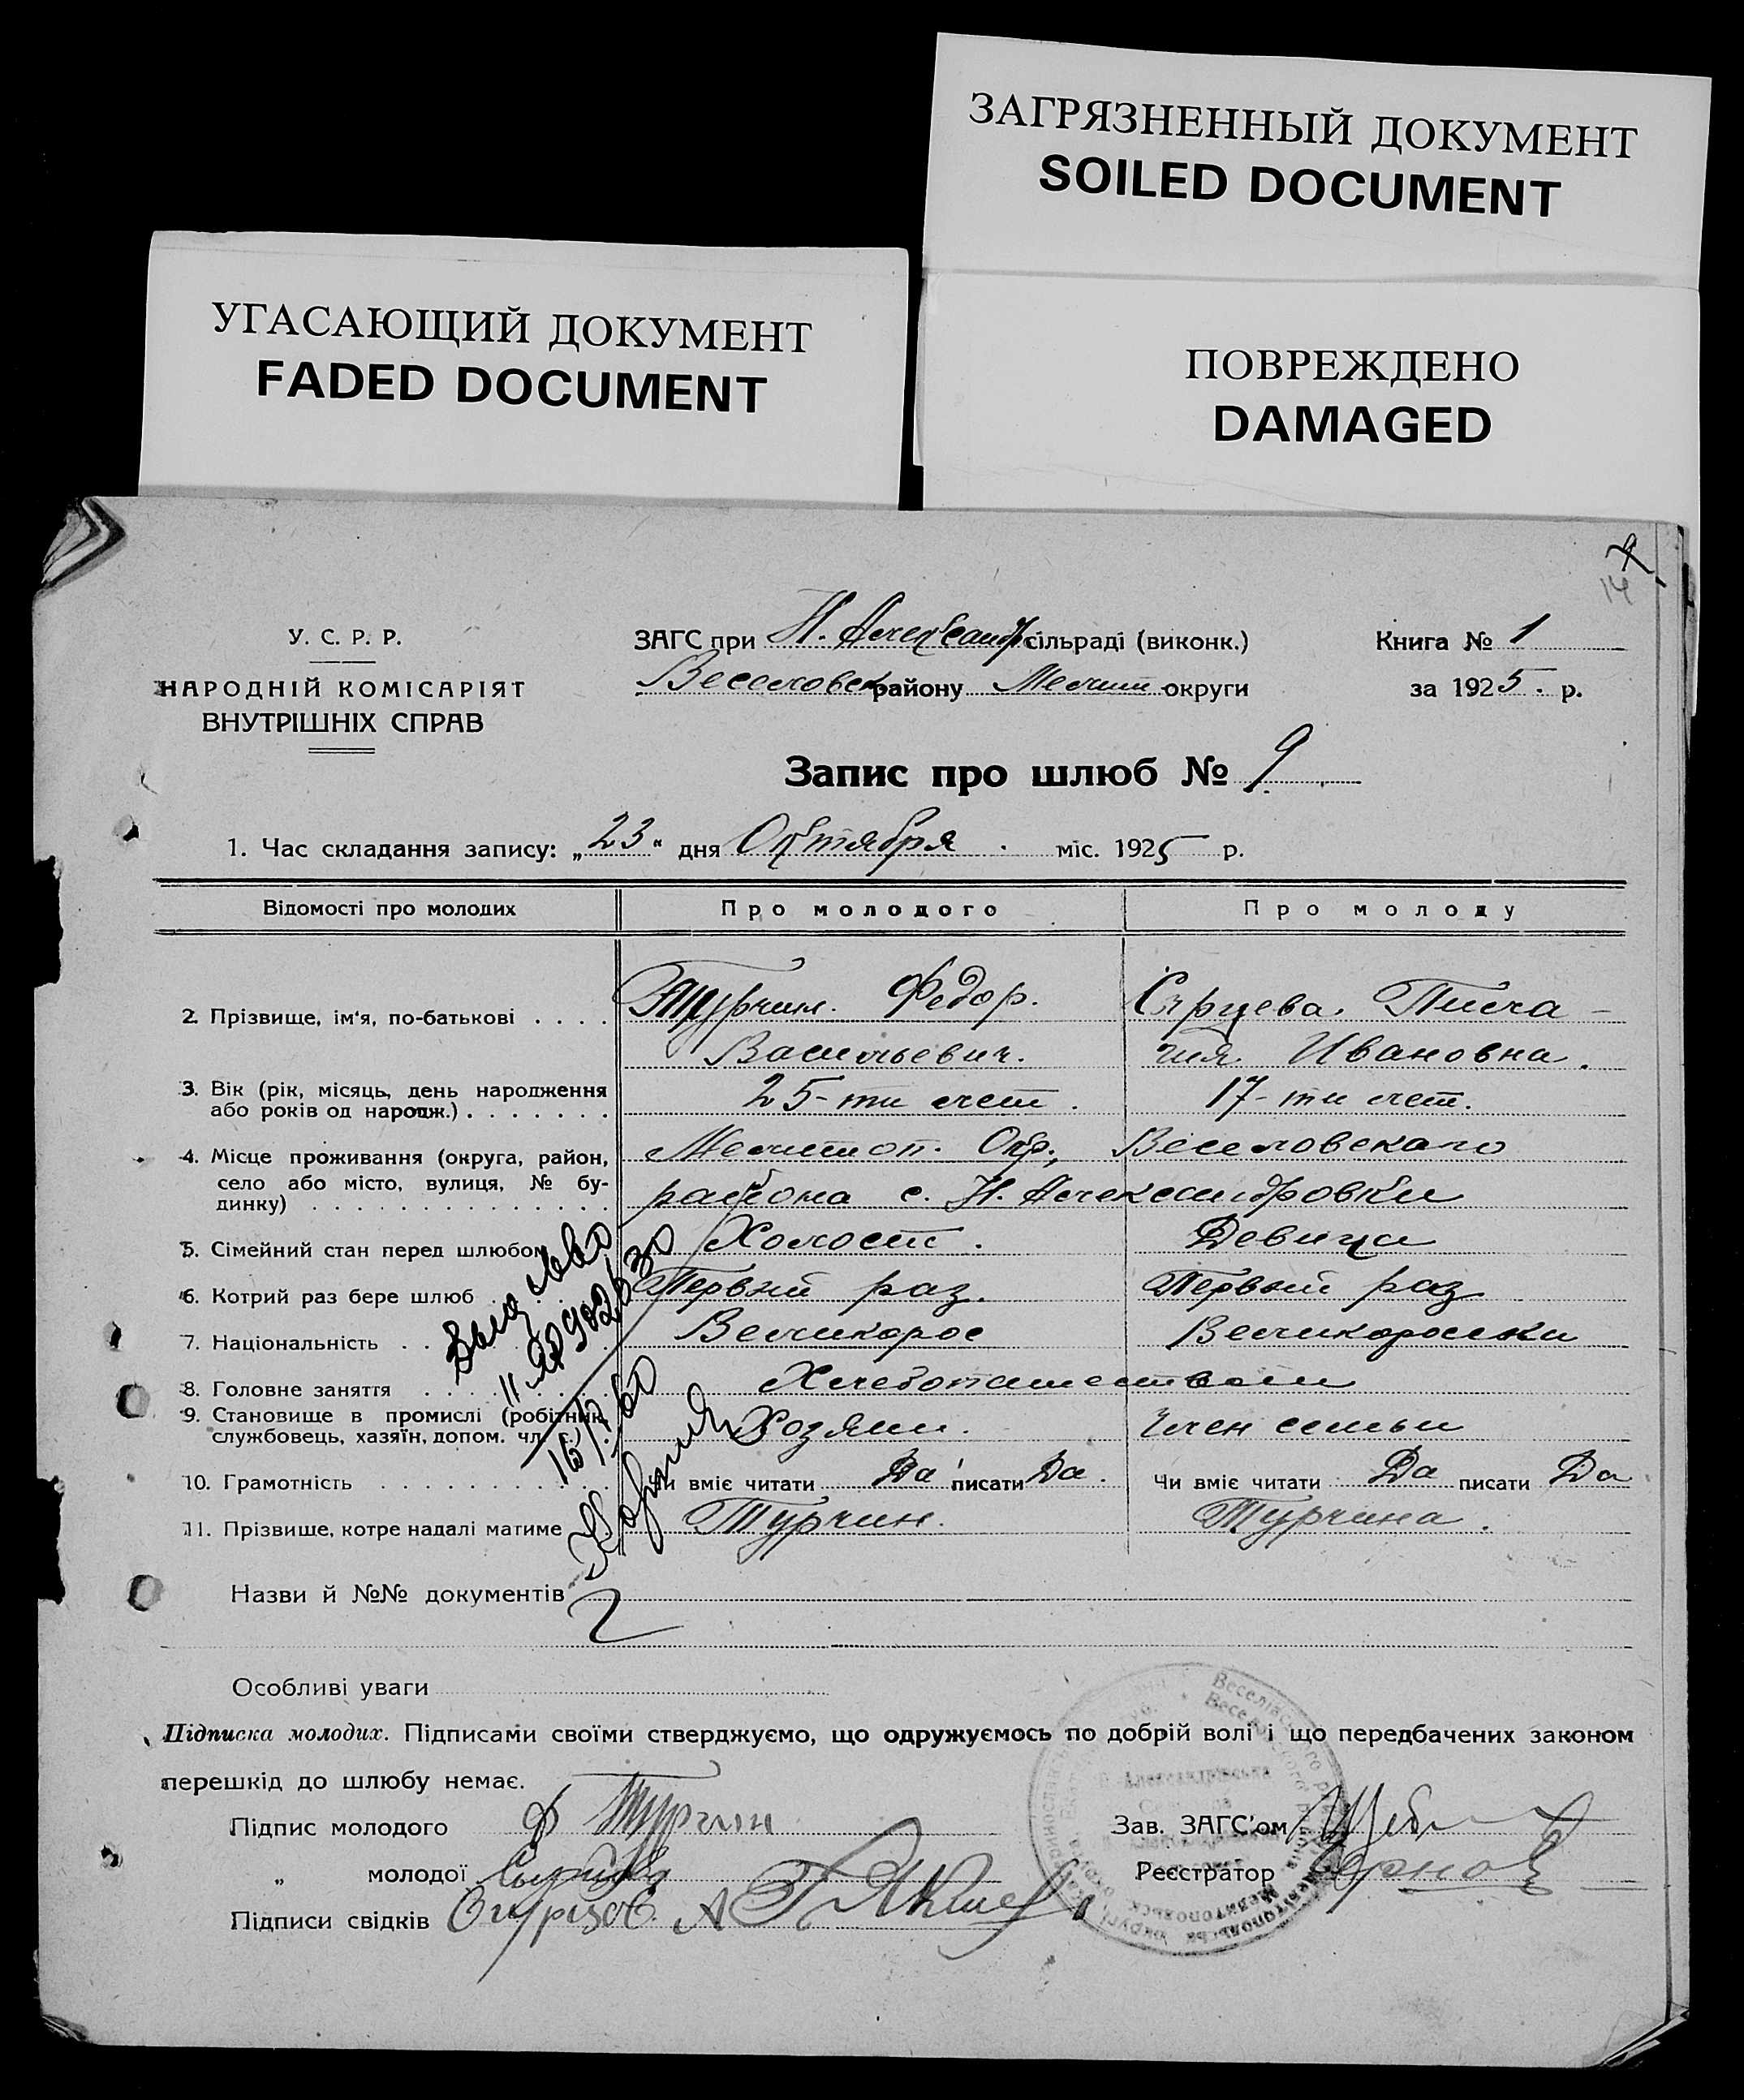 ЗАГРЯЗНЕННЫЙ ДОКУМЕНТ
SOILED DOCUMENT
УГАСАЮЩИЙ ДОКУМЕНТ
FADED DOCUMENT
ПОВРЕЖДЕНО
DAMAGED
14
У. С. Р. Р.
НАРОДНІЙ КОМІСАРІЯТ
ВНУТРІШНІХ СПРАВ
ЗАГС при Н. Александр сільраді (виконк.)
Веселовск району Мелит округи
Книга № 1
за 1925 р.
Запис про шлюб № 9
1. Час складання запису: „23" дня Октября міс. 1925 р.
Відомості про молодих Про молодого Про молоду
2. Прізвище, ім'я, по-батькові Турчин. Федор. Васильевич.
Пела-
гия Ивановна.
3. Вік (рік, місяць, день народження
або років од народж.) 25-ти лет. 17-ти лет.
4. Місце проживання (округа, район,
село або місто, вулиця, № бу-
динку)
Мелитоп. Окр., Веселовского
района с. Н. Александровки
5. Сімейний стан перед шлюбом Холост. Девица
6. Котрий раз бере шлюб Первый раз. Первый раз
7. Національність Великорос Великороска
8. Головне заняття Хлебопашеством
9. Становище в промислі (робітник,
службовець, хазяїн, допом. чл.
Хозяин. Член семьи
10. Грамотність Чи вміє читати Да писати Да. Чи вміє читати Да писати Да
11. Прізвище, котре надалі матиме Турчин. Турчина.
Назви й №№ документів
Особливі уваги
Підписка молодих. Підписами своїми стверджуємо, що одружуємось по добрій волі і що передбачених законом
перешкід до шлюбу немає.
Підпис молодого Ф Турчин
Зав. ЗАГС'ом
„ молодої
Реєстратор
Підписи свідків